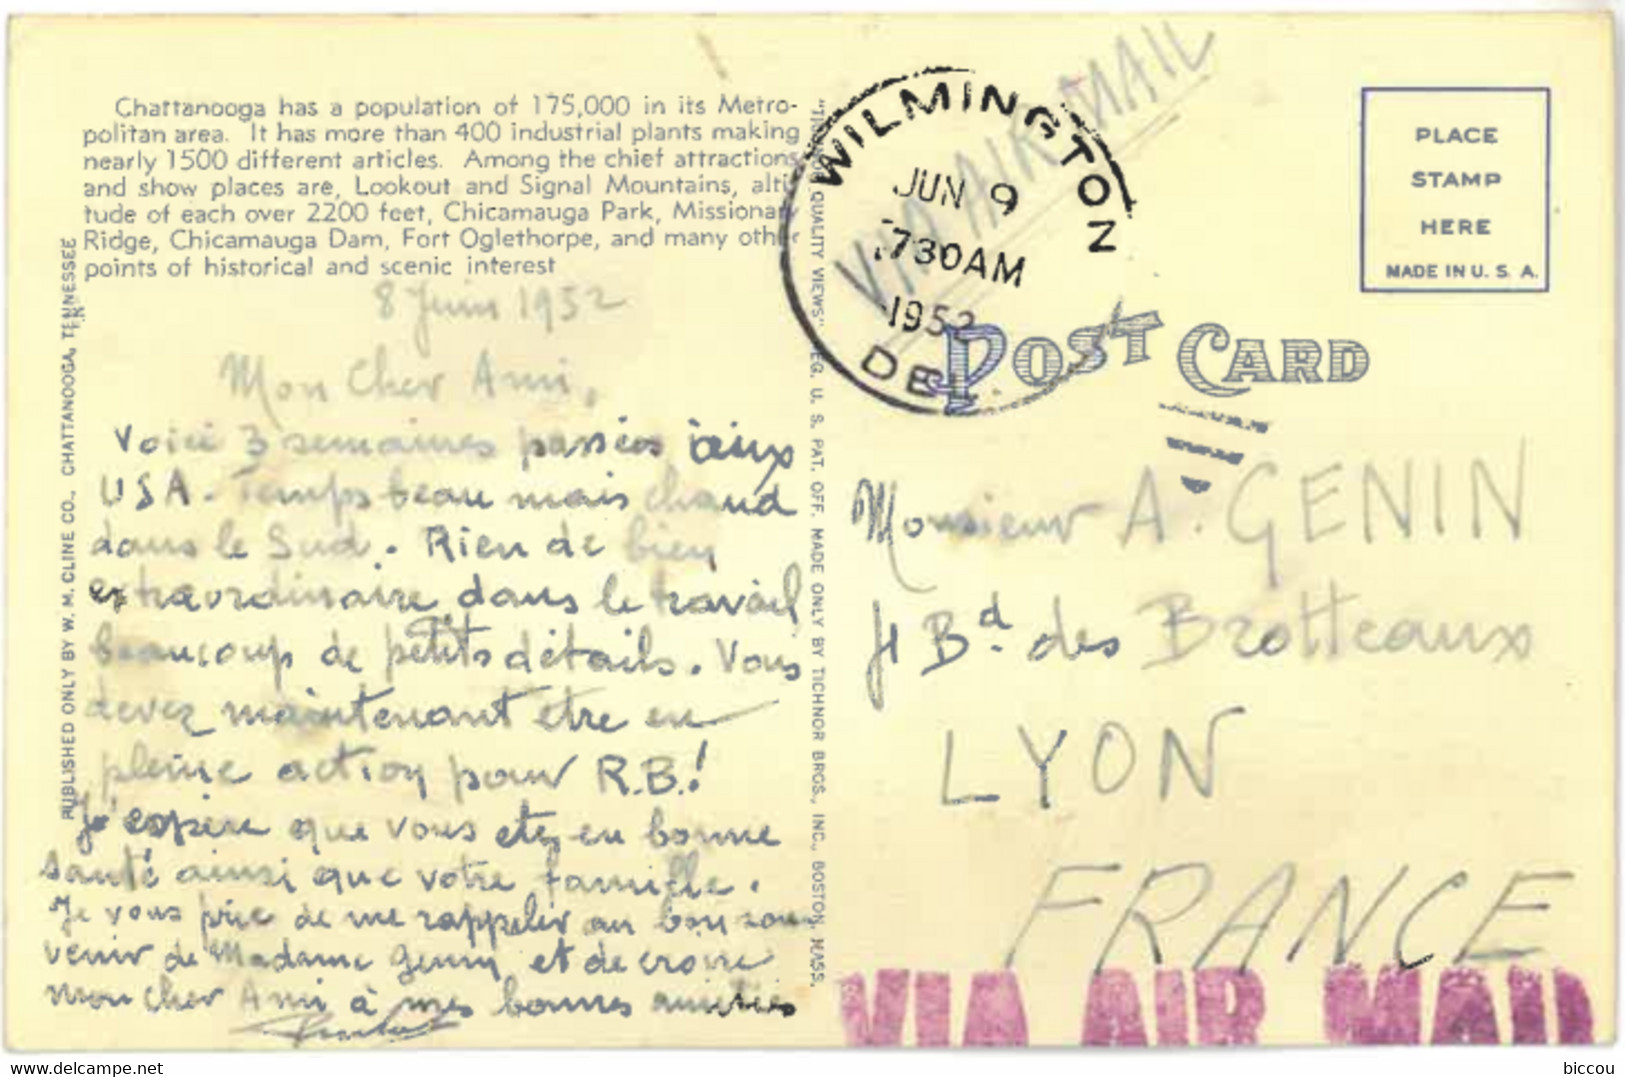 Chattanooga has a population of 175,000 in its Metro-
politan area. It has more than 400 industrial plants making
nearly 1500 different articles. Among the chief attractions
and show places are, Lookout and Signal Mountains, alti-
tude of each over 2200 feet, Chicamauga Park, Missionary
Ridge, Chicamauga Dam, Fort Oglethorpe, and many other
points of historical and scenic interest
8 Juin 1952
Mon Cher Ami,
Voici 3 semaines passées aux
USA. Temps beau mais chaud
dans le Sud. Rien de bien
extraordinaire dans le travail
beaucoup de petits détails. Vous
devez maintenant etre en
pleine action pour R.B.!
J'espère que vous etes en bonne
santé ainsi que votre famille.
Je vous prie de me rappeler au bon sou-
venir de Madame Genin et de croire
mon cher Ami à mes bonnes amitiés
PUBLISHED ONLY BY W. M. CLINE CO., CHATTANOOGA, TENNESSEE
"TICHNOR QUALITY VIEWS" REG. U. S. PAT. OFF. MADE ONLY BY TICHNOR BROS., INC., BOSTON, MASS.
VIA AIR MAIL
WILMINGTON
JUN 9
730AM
1952
DEL.
PLACE
STAMP
HERE
MADE IN U. S. A.
POST CARD
Monsieur A. GENIN
Bd. des Brotteaux
LYON
FRANCE
VIA AIR MAIL
biccou